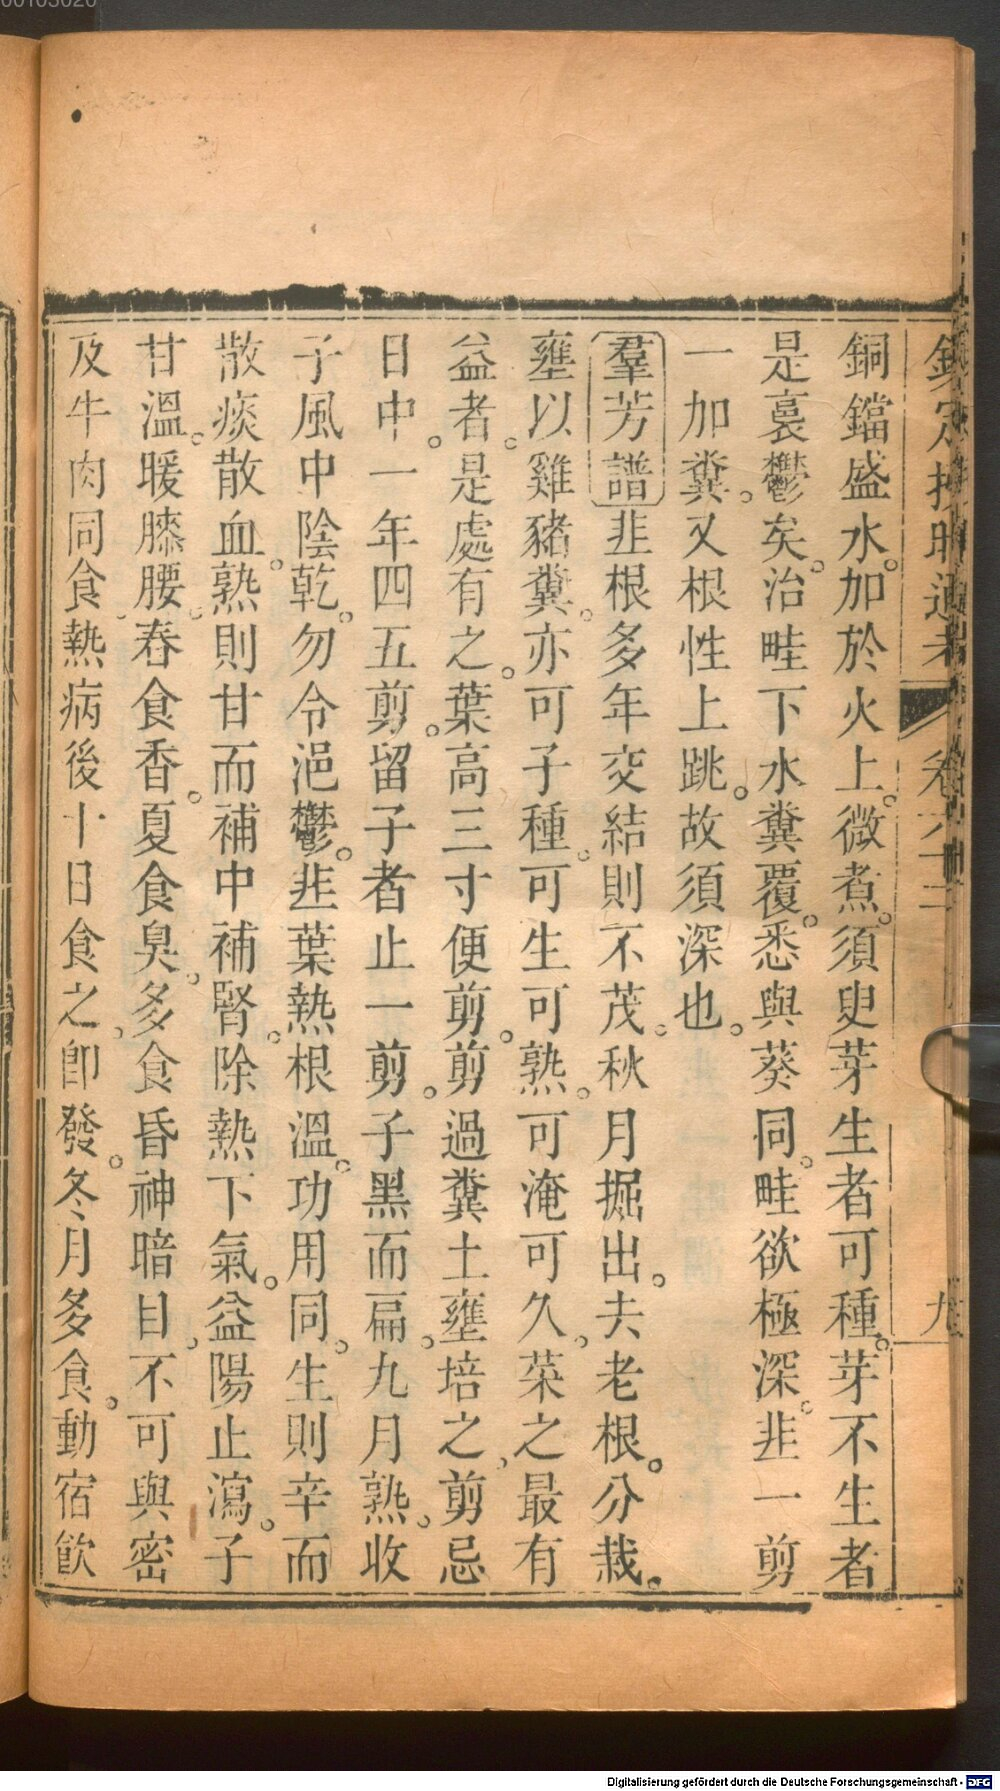 銅鐺盛水。加於火上。微煮。須臾芽生者可種。芽不生者
是裛鬱矣。治畦下水糞覆。悉與葵同。畦欲極深。韭一剪
一加糞。又根性上跳。故須深也。
羣芳譜韭根多年交結則不茂。秋月掘出。去老根。分栽。
壅以雞豬糞。亦可子種。可生可熟。可淹可久。菜之最有
益者。是處有之。葉高三寸便剪。剪過糞土壅培之。剪忌
日中。一年四五剪。留子者止一剪。子黑而扁。九月熟。收
子風中陰乾。勿令浥鬱。韭葉熱根溫。功用同。生則辛而
散痰散血。熟則甘而補中補腎。除熱下氣。益陽止瀉。子
甘溫。暖膝腰。春食香。夏食臭。多食昏神暗目。不可與密
及牛肉同食。熱病後十日食之。卽發。冬月多食。動宿飮
九
Digitalisierung gefördert durch die Deutsche Forschungsgemeinschaft - DFG